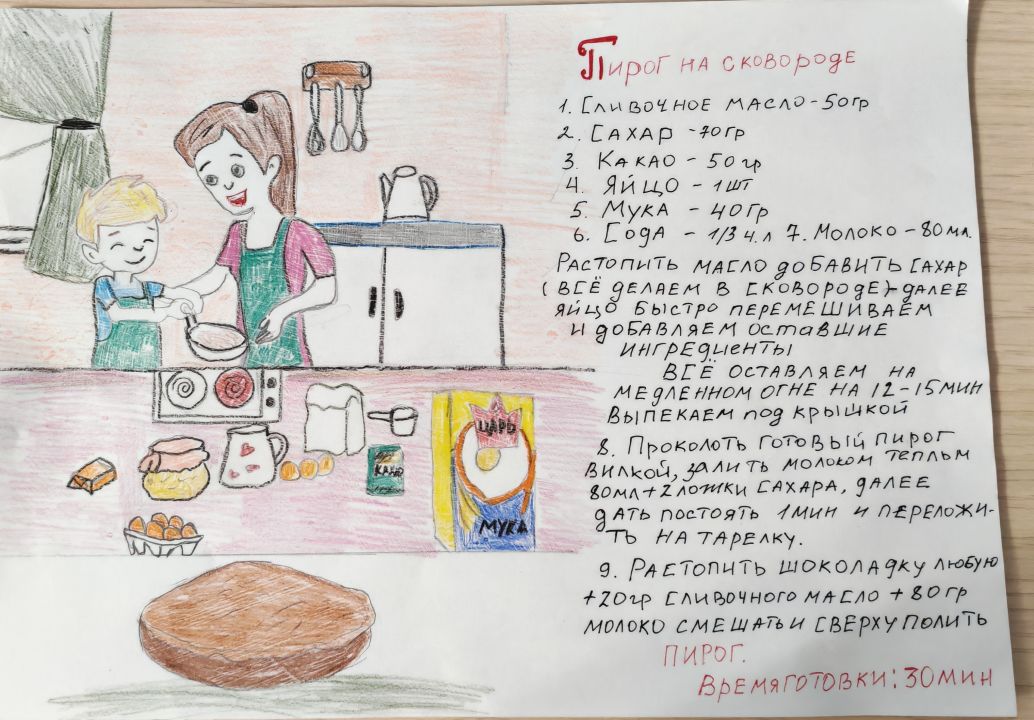 Пирог на сковороде
1. Сливочное масло - 50гр
2. Сахар - 70гр
3. Какао - 50гр
4. Яйцо - 1шт
5. Мука - 40гр
6. Сода - 1/3 ч.л 7. Молоко - 80мл.
Растопить масло добавить сахар
(всё делаем в сковороде) далее
яйцо быстро перемешиваем
и добавляем оставшие
ингредиенты
Всё оставляем на
медленном огне на 12-15мин
выпекаем под крышкой
8. Проколоть готовый пирог
вилкой, залить молоком теплым
80мл+2ложки сахара, далее
дать постоять 1мин и переложи-
ть на тарелку.
9. Растопить шоколадку любую
+20гр сливочного масло +80гр
молоко смешать и сверху полить
пирог.
Время готовки: 30мин
Царь
Какао
Мука